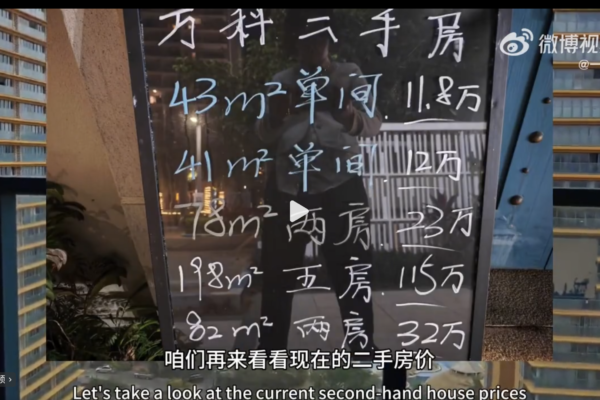 万科二手房
微博视
@一
43m²单间 11.8万
41m²单间 12万
78m²两房 23万
198m²五房 115万
82m²两房 32万
咱们再来看看现在的二手房价
Let's take a look at the current second-hand house prices